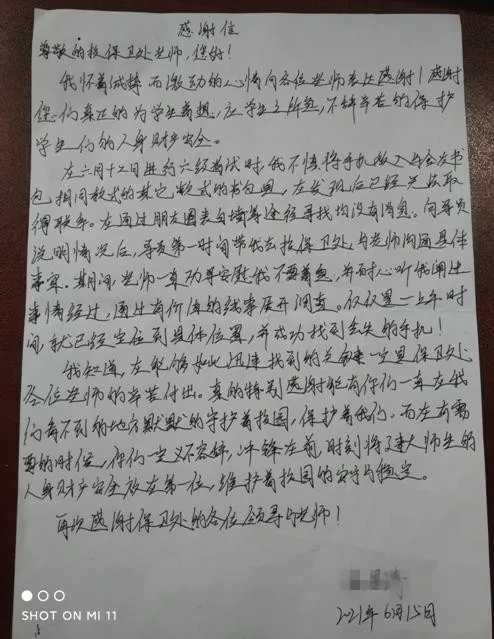 感谢信
尊敬的校保卫处老师，您好！
我怀着诚挚而激动的心情向各位老师表达感谢！感谢
您们真正的为学生着想，应学生之所急，不辞辛苦的保护
学生们的人身财产安全。
在六月十二日进行六级考试时，我不慎将手机放入与全友书
包相同款式的其它款式的书包里，在发现后已经无法取
得联系。在通过朋友圈表白墙等途径寻找均没有消息。向导员
说明情况后，导员第一时间带我去校保卫处，与老师沟通具体
事宜。期间，老师一直劝导安慰我不要着急，并耐心听我阐述
事情经过，通过有价值的线索展开调查。仅仅是一上午时
间，就已经定位到具体位置，并成功找到丢失的手机！
我知道，在能够如此迅速找到的关键一定是保卫处
各位老师的辛苦付出。真的特别感谢能有你们一直在我
们看不到的地方默默的守护着校园，保护着我们。而在有需
要的时候，你们一定义不容辞，冲锋在前，时刻将建大师生的
人身财产安全放在第一位，维护着校园的安宁与稳定。
再次感谢保卫处的各位领导与老师！
2021年6月15日
SHOT ON MI 11